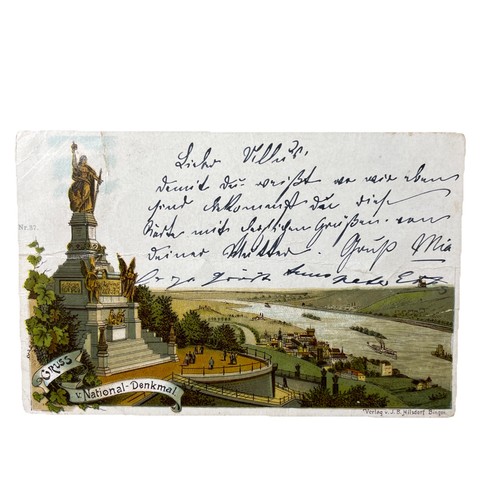 Lieber Villus
damit du weißt wo wir eben
sind bekommst du diese
Karte mit herzlichen Grüßen von
deiner Mutter. Gruß Mia
Nr. 37.
GRUSS
v. National-Denkmal.
Verlag v. J. B. Hilsdorf Bingen